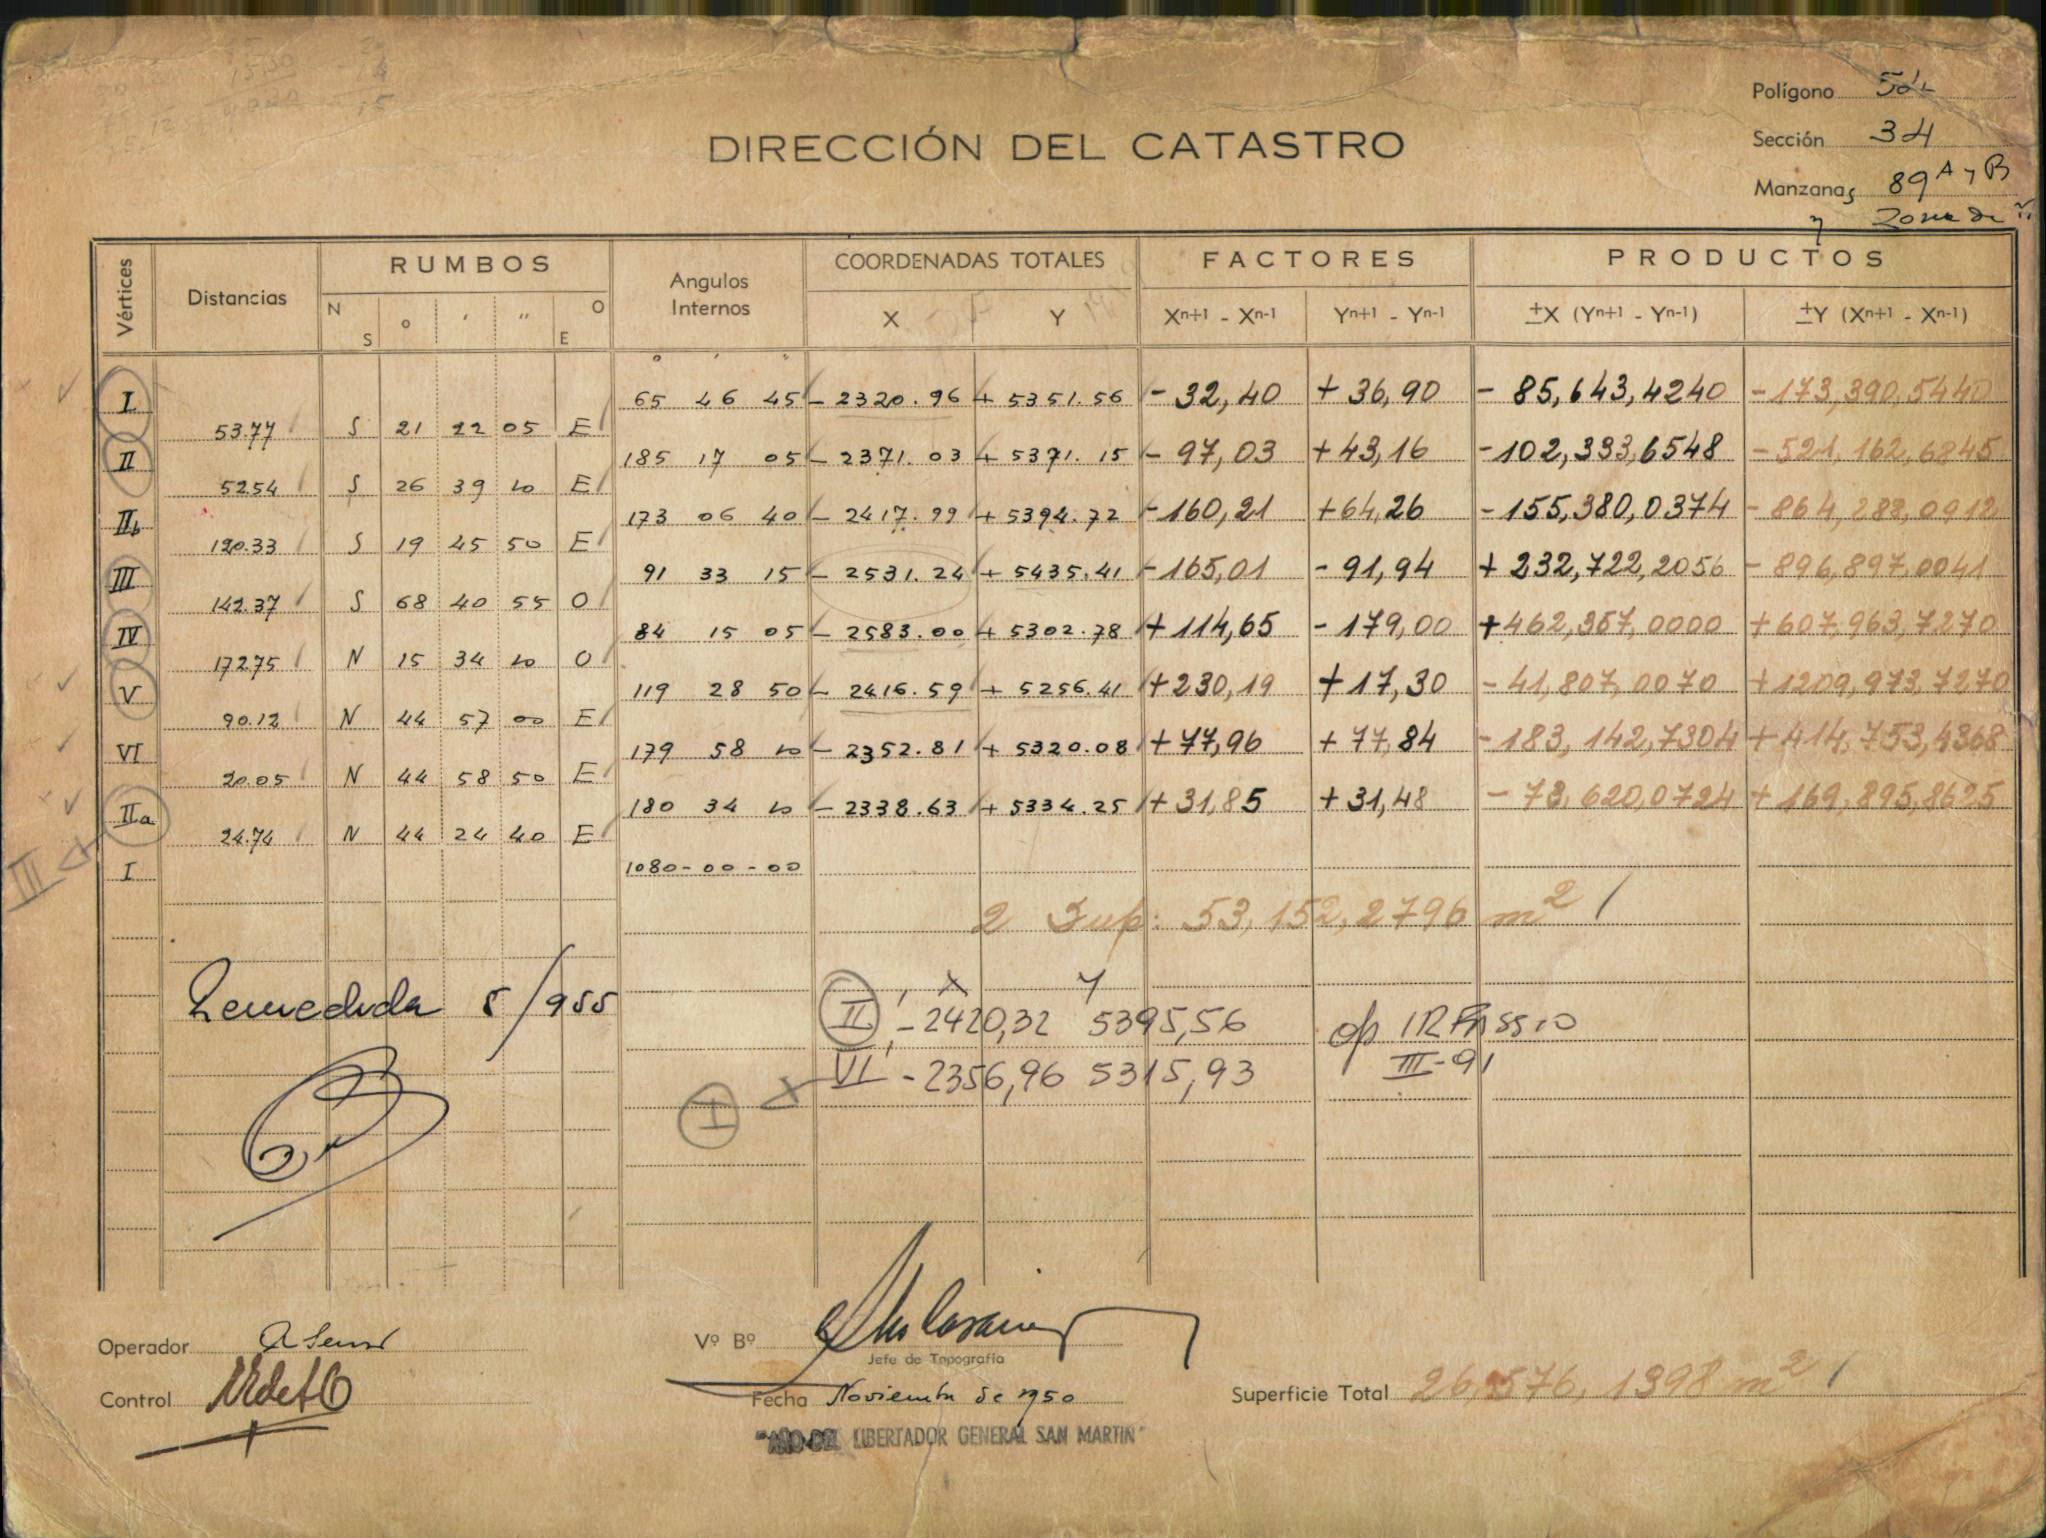 Polígono
DIRECCIÓN DEL CATASTRO
Sección 34
Manzanas 89 A y B
y Zona de
Vértices Distancias RUMBOS Angulos Internos COORDENADAS TOTALES FACTORES PRODUCTOS
N S ° ' " O E X Y Xn+1 - Xn-1 Yn+1 - Yn-1 ±X (Yn+1 - Yn-1) ±Y (Xn+1 - Xn-1)
° ' "
I 65 46 45 - 2320.96 + 5351.56 - 32,40 + 36,90 - 85,643,4240 - 173,390,5440
53.77 S 21 22 05 E
II 185 17 05 - 2371.03 + 5371.15 - 97,03 + 43,16 - 102,333,6548 - 521,162,6845
52.54 S 26 39 10 E
IIb 173 06 40 - 2417.99 + 5394.72 - 160,21 + 64,26 - 155,380,0374 - 864,288,0912
120.33 S 19 45 50 E
III 91 33 15 - 2531.24 + 5435.41 - 165,01 - 91,94 + 232,722,2056 - 896,897,0041
142.37 S 68 40 55 O
IV 84 15 05 - 2583.00 + 5302.78 + 114,65 - 179,00 + 462,357,0000 + 607,963,7270
172.75 N 15 34 10 O
V 119 28 50 - 2416.59 + 5256.41 + 230,19 + 17,30 - 41,807,0070 + 1209,973,7270
90.12 N 44 57 00 E
VI 179 58 10 - 2352.81 + 5320.08 + 77,96 + 77,84 - 183,142,7304 + 414,753,4368
20.05 N 44 58 50 E
IIa 180 34 10 - 2338.63 + 5334.25 + 31,85 + 31,48 - 73,620,0724 + 169,895,8625
24.74 N 44 24 40 E
III
I 1080-00-00
2 Sup: 53,152,2796 m2
Remedida 5/955
X Y
II' - 2420,32 5395,56
VI' - 2356,96 5315,93
III-91
I
Operador
Vº Bº
Jefe de Topografía
Control
Fecha Noviembre de 1950
Superficie Total 26,576,1398 m2
"AÑO DEL LIBERTADOR GENERAL SAN MARTIN"